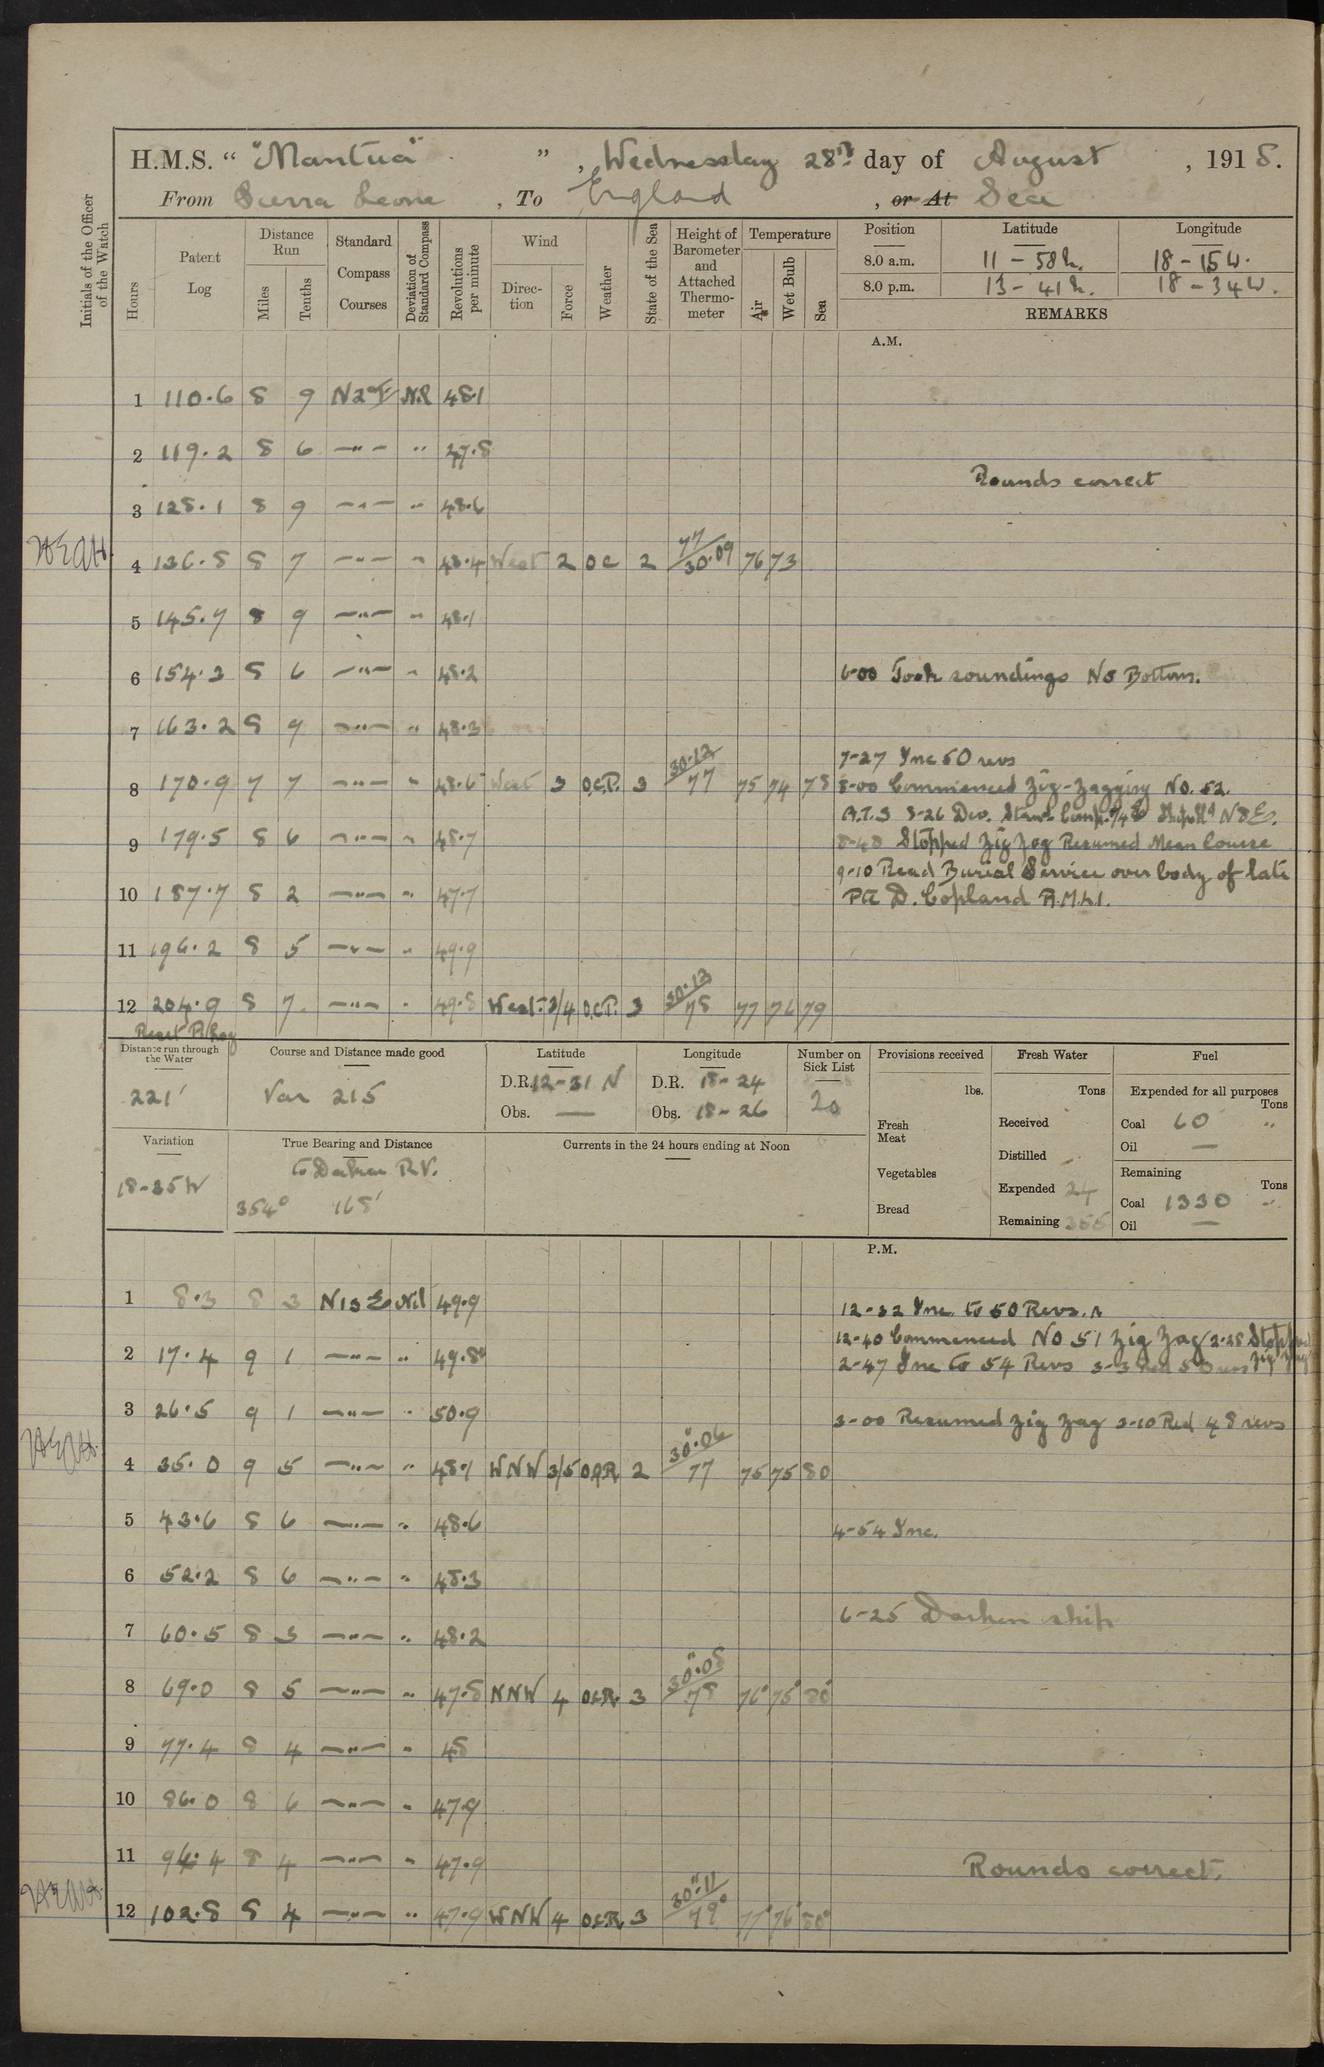 H.M.S. " "Mantua" " , Wednesday 28th day of August , 1918.
From Sierra Leone , To England , or At Sea
Initials of the Officer of the Watch
Hours Patent Log Distance Run Miles Tenths Standard Compass Courses Deviation of Standard Compass Revolutions per minute Wind Direction Force Weather State of the Sea Height of Barometer and Attached Thermometer Temperature Air Wet Bulb Sea
Position Latitude Longitude
8.0 a.m. 11 - 58 N. 18 - 15 W.
8.0 p.m. 13 - 41 N. 18 - 34 W.
REMARKS
A.M.
1 110.6 8 9 N2°E 48.1
2 119.2 8 6 —"— " 47.8
Rounds correct
3 128.1 8 9 —"— " 48.6
4 136.8 8 7 —"— " 48.4 West 2 OC 2 77/30.09 76 73
5 145.7 8 9 —"— " 48.1
6 154.3 8 6 —"— " 48.2 6-00 Took soundings No Bottom.
7 163.2 8 9 —"— " 48.3
7-27 Inc 50 revs
8 170.9 7 7 —"— " 48.6 West 3 O.C.P. 3 30.12/77 75 74 78 8-00 Commenced Zig-Zagging No. 52.
A.T.S 8-26 Dev. Stand Comp.
9 179.5 8 6 —"— " 48.7 8-48 Stopped Zig Zag Resumed Mean Course
9-10 Read Burial Service over body of late
10 187.7 8 2 —"— " 47.7 Pte D. Copland R.M.L.I.
11 196.2 8 5 —"— " 49.9
12 204.9 8 7 —"— " 49.8 West 3/4 O.C.P. 3 30.13/78 77 76 79
Reset P/Log
Distance run through the Water Course and Distance made good Latitude Longitude Number on Sick List Provisions received Fresh Water Fuel
221' Var 215 D.R. 12-31 N D.R. 18-24 20 lbs. Tons Expended for all purposes Tons
Obs. — Obs. 18-26 Fresh Meat Received Coal 60 "
Oil —
Variation True Bearing and Distance Currents in the 24 hours ending at Noon
18-35 W to Dakar R.V. Vegetables Distilled Remaining Tons
354° 168' Bread Expended 24 Coal 1330 "
Remaining 355 Oil —
P.M.
1 8.3 8 3 N13E Nil 49.9 12-32 Inc. to 50 Revs.
12-40 Commenced No 51 Zig Zag 2-28 Stopped Zig Zag
2 17.4 9 1 —"— " 49.8 2-47 Inc to 54 Revs
3 26.5 9 1 —"— " 50.9 3-00 Resumed Zig Zag 3-10 Red 48 revs
4 35.0 9 5 —"— " 48.1 WNW 3/5 2 30.06/77 75 75 80
5 43.6 8 6 —"— " 48.6 4-54 Inc.
6 52.2 8 6 —"— " 48.3
6-25 Darken ship
7 60.5 8 3 —"— " 48.2
8 69.0 8 5 —"— " 47.8 NNW 4 OCR 3 30".08/78 76° 75° 80°
9 77.4 8 4 —"— " 48
10 86.0 8 6 —"— " 47.9
11 94.4 8 4 —"— " 47.9 Rounds correct.
12 102.8 8 4 —"— " 47.9 WNW 4 OCR 3 30".11/79° 77° 76° 80°